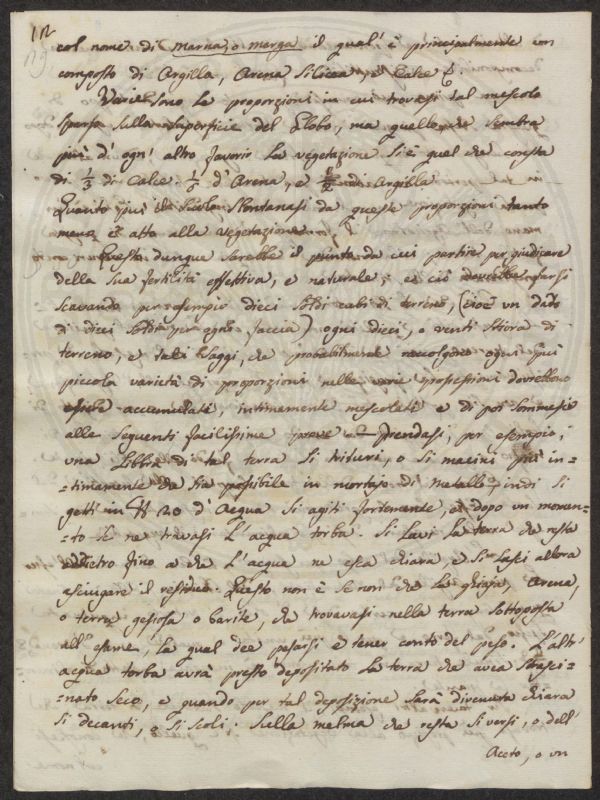 12
col nome di Marna, o marga il qual' è principalmente con
composto di Argilla, Arena Silicea, e Calce.
Varie sono le proporzioni in cui trovasi tal mescolo
sparso sulla superficie del Globo, ma quello che sembra
più d'ogn' altro favorir la vegetazione si è quel che consta
di 1/3 di Calce. 1/3 d'Arena, e di Argilla
Quanto più il suolo allontanasi da queste proporzioni tanto
meno è atto alla vegetazione.
Questo dunque sarebbe il punto da cui partire per giudicare
della sua fertilità effettiva, e naturale; e ciò dovrebbe farsi
scavando per esempio dieci soldi cubi di terreno, (cioè un dado
di dieci soldi per ogni faccia) ogni dieci, o venti Stiora di
terreno, e tali saggi, che probabilmente raccolgono ogni più
piccola varietà di proporzioni nelle varie possessioni dovrebbono
accumulati, intimamente mescolati e di poi sommessi
alle seguenti facilissime prove. Prendasi, per esempio,
una Libbra di tal terra si trituri, o si macini più in=
=timamente che sia possibile in mortajo di Metallo, indi si
getti in ℔ 20 d'Acqua si agiti fortemente, e dopo un momen=
=to se ne travasi l'acqua torba. Si lavi la terra che resta
addietro fino a che l'acqua ne esca chiara, e si lasci allora
asciugare il residuo. Questo non è se non che la ghiaja, Arena,
o terra gessosa o barite, che trovavasi nella terra sottoposta
all' esame, la qual dee pesarsi e tener conto del peso. L'altr'
acqua torba avrà presto depositato la terra che avea strasci=
=nato seco, e quando per tal deposizione sarà divenuta chiara
si decanti, o si scoli. Sulla melma che resta si versi, o dell'
Aceto, o un